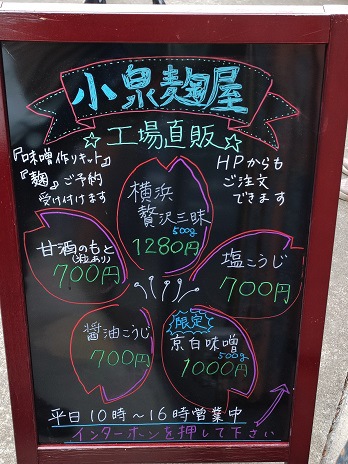 小泉麹屋
☆工場直販☆
『味噌作りキット』
『麹』ご予約
受け付けます
HPからも
ご注文
できます
横浜
贅沢三昧
500g
1280円
甘酒のもと
(粒あり)
700円
塩こうじ
700円
醤油こうじ
700円
限定
京白味噌
500g
1000円
平日10時〜16時営業中
インターホンを押して下さい